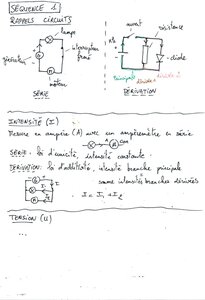 SÉQUENCE 1
RAPPELS CIRCUITS
lampe
ouvert
résistance
générateur
interrupteur fermé
diode
moteur
principale
dérivée 1
dérivée 2
SÉRIE
DÉRIVATION
INTENSITÉ (I)
Mesurée en ampère (A) avec un ampèremètre en série
SÉRIE : loi d'unicité, intensité constante
DÉRIVATION : loi d'additivité, intensité branche principale
somme intensités branches dérivées
I = I₁ + I₂
TENSION (U)